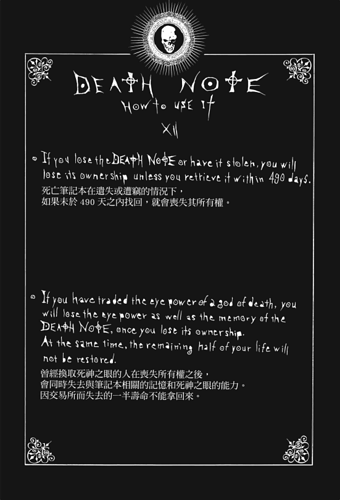 DEATH NOTE
How to USE It
XII
If you lose the DEATH NOTE or have it stolen, you will
lose its ownership unless you retrieve it within 490 days.
死亡筆記本在遺失或遭竊的情況下，
如果未於 490 天之內找回，就會喪失其所有權。
If you have traded the eye power of a god of death, you
will lose the eye power as well as the memory of the
DEATH NOTE, once you lose its ownership.
At the same time, the remaining half of your life will
not be restored.
曾經換取死神之眼的人在喪失所有權之後，
會同時失去與筆記本相關的記憶和死神之眼的能力。
因交易所而失去的一半壽命不能拿回來。